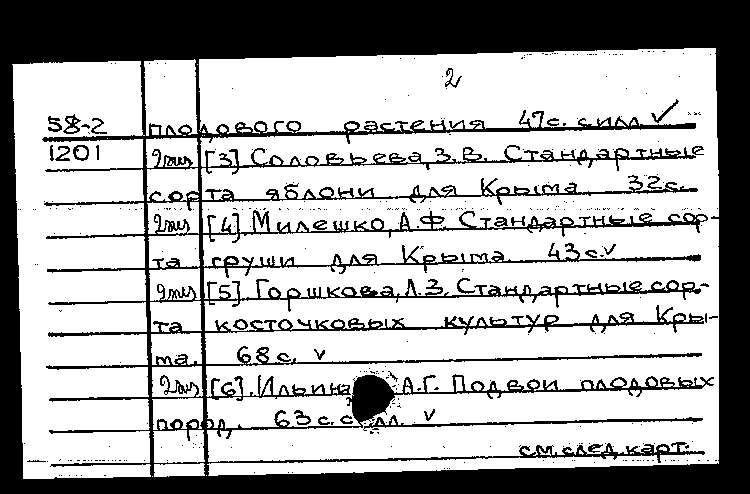 2
58-2 плодового растения 47с. с илл. ✓
1201 2экз [3] Соловьева, З.В. Стандартные
сорта яблони для Крыма. 32с.
2экз [4] Милешко, А.Ф. Стандартные сор-
та груши для Крыма. 43с. ✓
2экз [5]. Горшкова, Л.З. Стандартные сор-
та косточковых культур для Кры-
ма. 68с. ✓
2экз [6]. Ильина А.Г. Подвои плодовых
пород. 63с. с илл. ✓
см. след. карт.